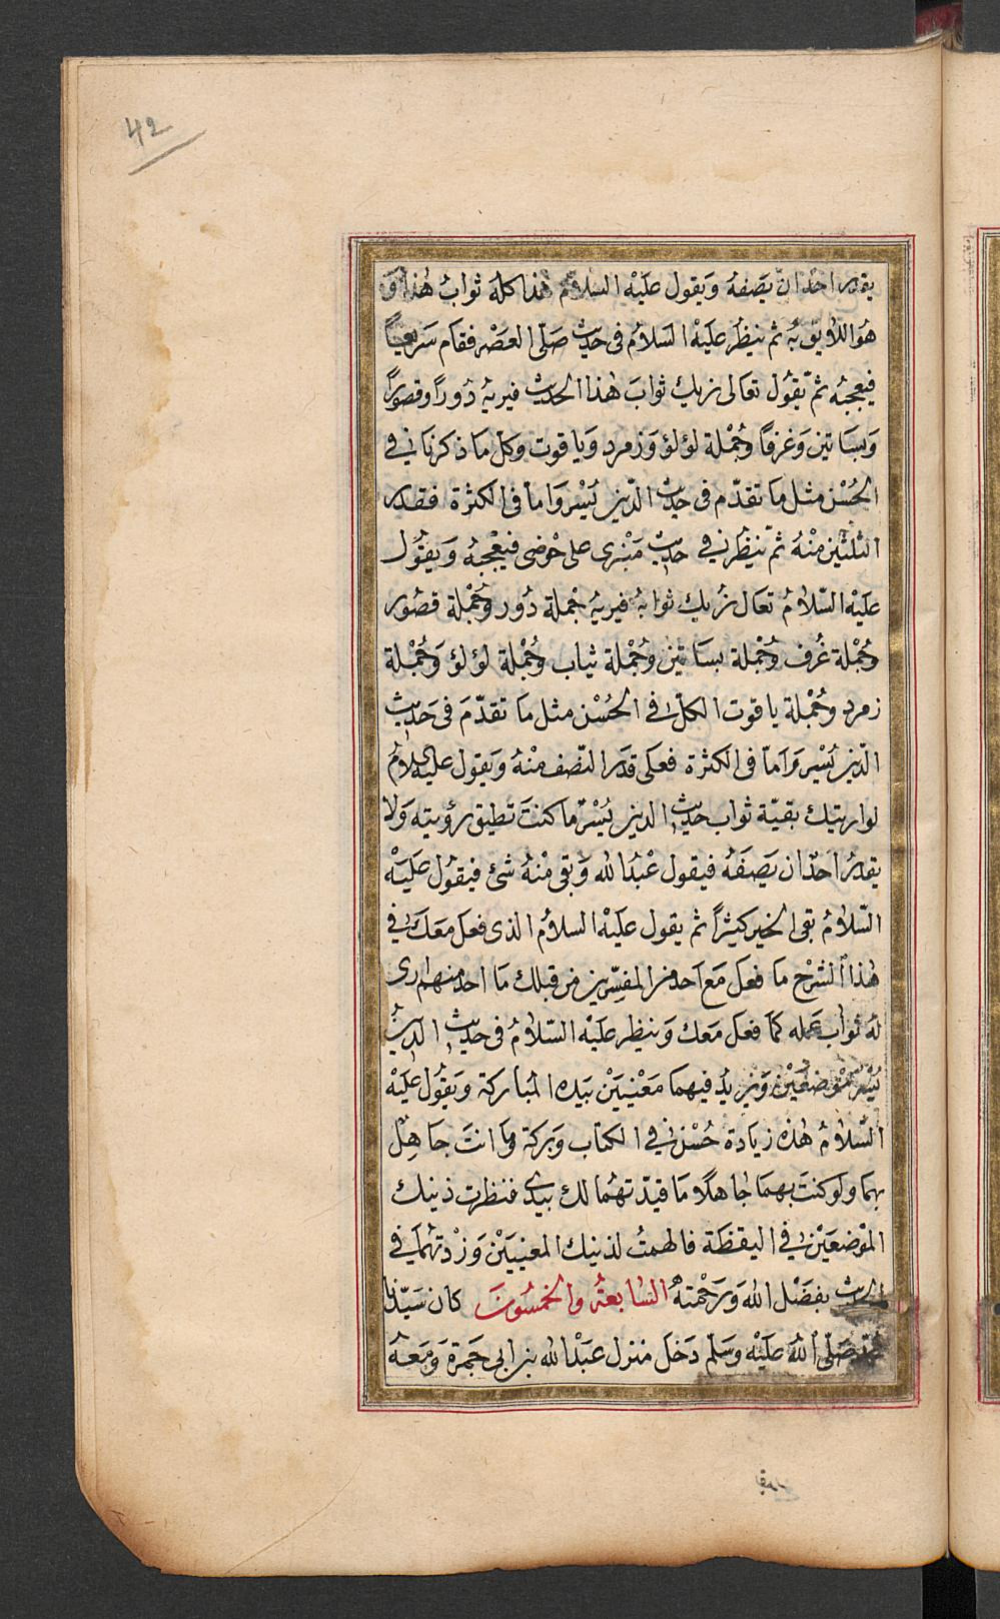 42
يقدر احدا انّ يَصَفهُ وَيقول عليْهِ السلامُ هٰذا كلهَ ثوابُ هٰذا وَ
هُوَ اللايق بهُ ثم ينظُر عليْهِ السَلامُ فى حديث صَلى العصْر فقام سَريعيًا
فيعجبُه ثمّ يقوُل تعالى نريك ثوابَ هٰذا الحديث فيريهُ دُورًا وقصورًا
وَبسَاتين وَغرفًا وجُمْلة لؤلؤ وَزمرد وَياقوت وكلّ ما ذكرنا فى
الحُسْن مثل مَا تقدّم فى حديث الدّين يُسْر وَاما فى الكثرة فقدر
الثلثين منْهُ ثمّ ينظُر فى حديث مَنبْرى على حَوْضى فيعْجبُه وَيقوُل
عليْه السّلامُ تعال نُريك ثوابهُ فيريهُ جُملة دُور وجُمْلة قصُور
وجُمْلة غُرف وجُمْلة بسَاتين وجُمْلة ثياب وجُمْلة لؤلؤ وَجُمْلة
زمرد وجُمْلة ياقوت الكلّ فى الحُسْن مثل ما تقدّمَ فى حَديث
الدّين يُسْر وَامّا فى الكثرة فعلى قدَر النّصف منْهُ وَيقول عليْه السلامُ
لو اريتك بقيّة ثواب حديث الدين يُسْر ما كنتَ تطيق رؤيته وَلا
يقدرُ احَدّ ان يَصِفَهُ فيقول عَبْدُ الله وَبقى منْهُ شئ فيقوُل عليَهْ
السّلامُ بقى الخير كثيرًا ثم يقول عليْهِ السلامُ الذى فعل مَعَك فى
هٰذا الشرْح ما فعل مَع احد من المفسّرين من قبلك مَا احد منهم ارى
لهُ ثواب عَمله كما فعل مَعك وَينظر عليْه السّلامُ فى حديث الدينُ
يُسْر مَوْضعَيْن وَيزيدُ فيهما مَعْنيَيْن بيَده المبُاركة وَيقوُل عليْهِ
السّلامُ هٰذه زيادة حُسْن فى الكتاب وَبركة وما انتَ جاهِل
بهمَا ولو كنتَ بهمَا جاهلًا مَا قيدّتهُما لك بيدى فنظرت ذينك
الموْضعَيْن فى اليقظة فالهمتُ لذينك المعنييَن وَزدْتهُما فى
الحديث بفضَل الله وَرَحْمتهُ السَابعةُ والخمسُونَ كان سَيّدنا
محمّد صَلّى اللهُ عليْه وسَلم دَخل منزل عبَدْ الله بن ابى جَمرة وَمَعهُ
يقدر